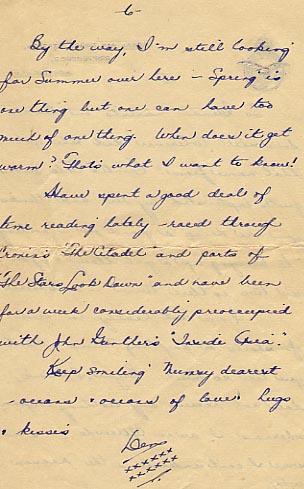 6-
By the way, I'm still looking
for Summer over here - Spring is
one thing but one can have too
much of one thing. When does it get
warm? That's what I want to know!
Have spent a good deal of
time reading lately - raced through
Cronin's "The Citadel" and parts of
"The Stars Look Down" and have been
for a week considerably preoccupied
with John Gunther's "Inside Asia."
Keep smiling Mumsy dearest
- oceans & oceans of love. hugs
& kisses
xxxxxx
xxxxxx